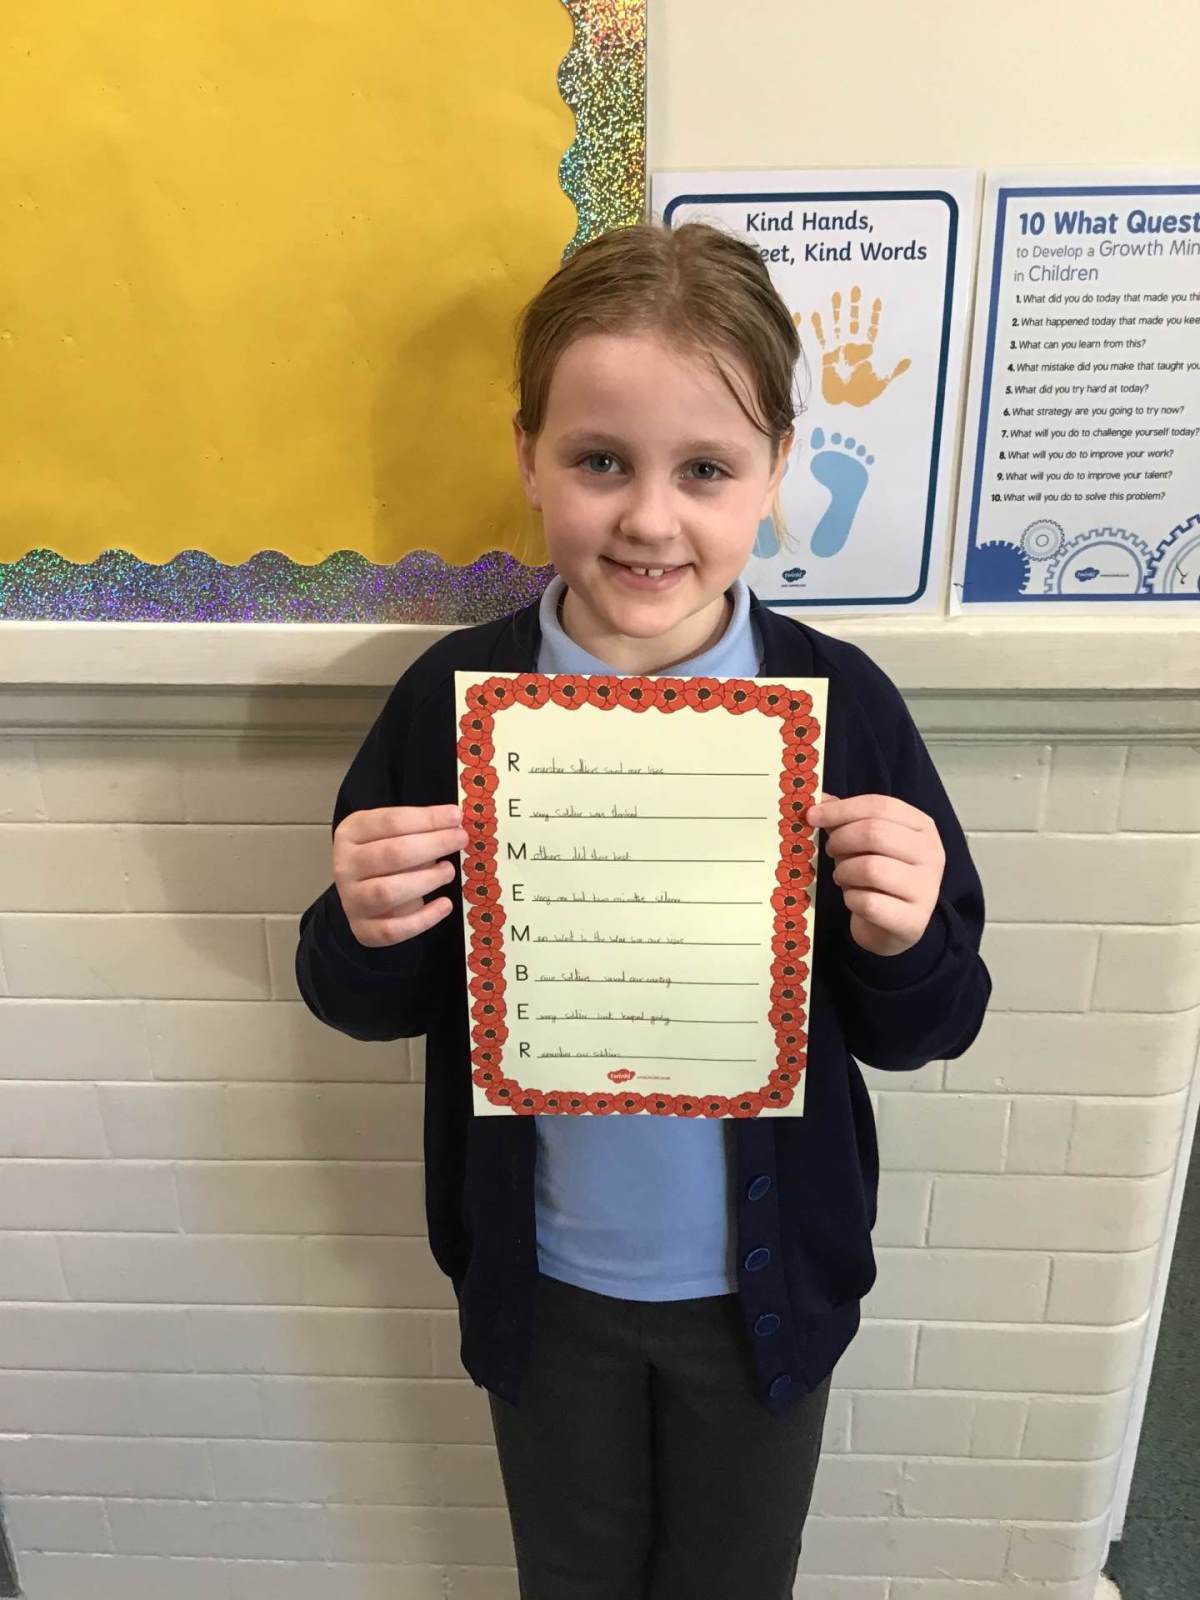 Kind Hands,
eet, Kind Words
twinkl
10 What Quest
to Develop a Growth Min
in Children
1. What did you do today that made you thi
2. What happened today that made you kee
3. What can you learn from this?
4. What mistake did you make that taught you
5. What did you try hard at today?
6. What strategy are you going to try now?
7. What will you do to challenge yourself today?
8. What will you do to improve your work?
9. What will you do to improve your talent?
10. What will you do to solve this problem?
twinkl
Remember soldiers our lives
Every soldier was thanked
M others did best
Every one two silence
Men went to the war our
B our soldiers saved our
Every soldier keeped going
Remember our soldiers
twinkl